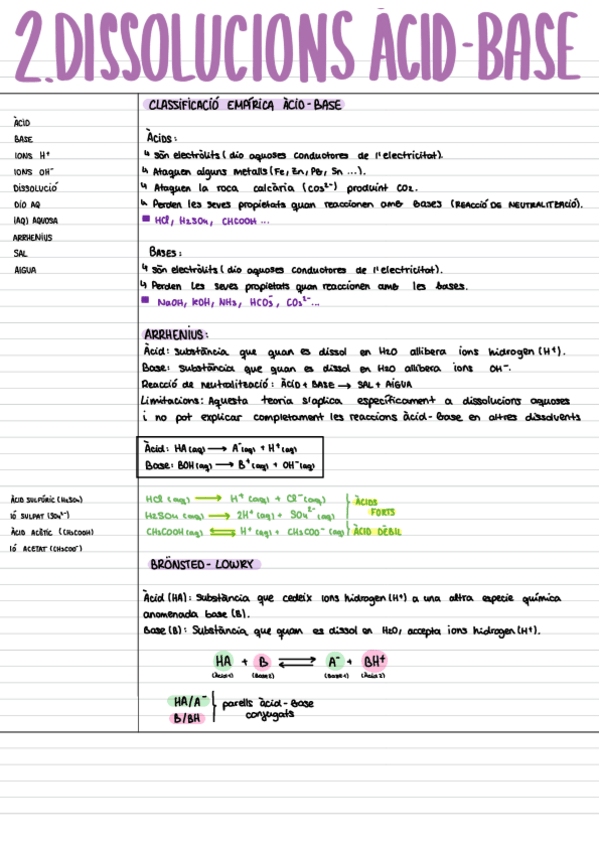 2. DISSOLUCIONS ÀCID-BASE
CLASSIFICACIÓ EMPÍRICA ÀCID-BASE
ÀCID
BASE
IONS H⁺
IONS OH⁻
DISSOLUCIÓ
DIÓ AQ
(AQ) AQUOSA
ARRHENIUS
SAL
AIGUA
ÀCIDS:
↳ són electròlits (dio aquoses conductores de l'electricitat).
↳ Ataquen alguns metalls (Fe, Zn, Pb, Sn ...).
↳ Ataquen la roca calcària (CO₃²⁻) produint CO₂.
↳ Perden les seves propietats quan reaccionen amb bases (REACCIÓ DE NEUTRALITZACIÓ).
■ HCl, H₂SO₄, CHCOOH ...
BASES:
↳ són electròlits (dio aquoses conductores de l'electricitat).
↳ Perden les seves propietats quan reaccionen amb les bases.
■ NaOH, KOH, NH₃, HCO₃⁻, CO₃²⁻...
ARRHENIUS:
Àcid: substància que quan es dissol en H₂O allibera ions hidrogen (H⁺).
Base: substància que quan es dissol en H₂O allibera ions OH⁻.
Reacció de neutralització: ÀCID + BASE → SAL + AIGUA
Limitacions: Aquesta teoria s'aplica específicament a dissolucions aquoses
i no pot explicar completament les reaccions àcid-base en altres dissolvents
Àcid: HA (aq) → A⁻(aq) + H⁺(aq)
Base: BOH (aq) → B⁺(aq) + OH⁻(aq)
ÀCID SULFÚRIC (H₂SO₄)
IÓ SULPAT (SO₄²⁻)
ÀCID ACÈTIC (CH₃COOH)
IÓ ACETAT (CH₃COO⁻)
HCl (aq) → H⁺ (aq) + Cl⁻(aq)
H₂SO₄ (aq) → 2H⁺(aq) + SO₄²⁻(aq)
ÀCIDS
FORTS
CH₃COOH (aq) ⇌ H⁺(aq) + CH₃COO⁻(aq) ÀCID DÈBIL
BRÖNSTED-LOWRY
Àcid (HA): substància que cedeix ions hidrogen (H⁺) a una altra especie química
anomenada base (B).
Base (B): Substància que quan es dissol en H₂O, accepta ions hidrogen (H⁺).
HA + B ⇌ A⁻ + BH⁺
(Àcid 1) (Base 2) (Base 1) (Àcid 2)
HA/A⁻
B/BH
parells àcid-base
conjugats